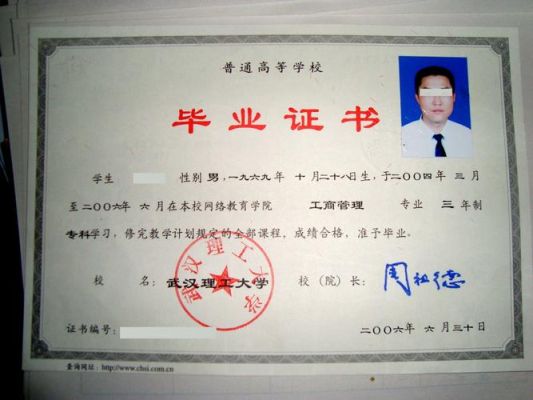 普通高等学校
毕业证书
学生 性别 男,一九六九年 十月二十八日生,于二〇〇四年 三月
至二〇〇六年 六月在本校网络教育学院 工商管理 专业 三 年制
专科学习,修完教学计划规定的全部课程,成绩合格,准予毕业。
校 名:武汉理工大学 校(院)长:周祖德
武汉理工大学
证书编号: 二〇〇六年 六月三十日
查询网址:http://www.chsi.com.cn